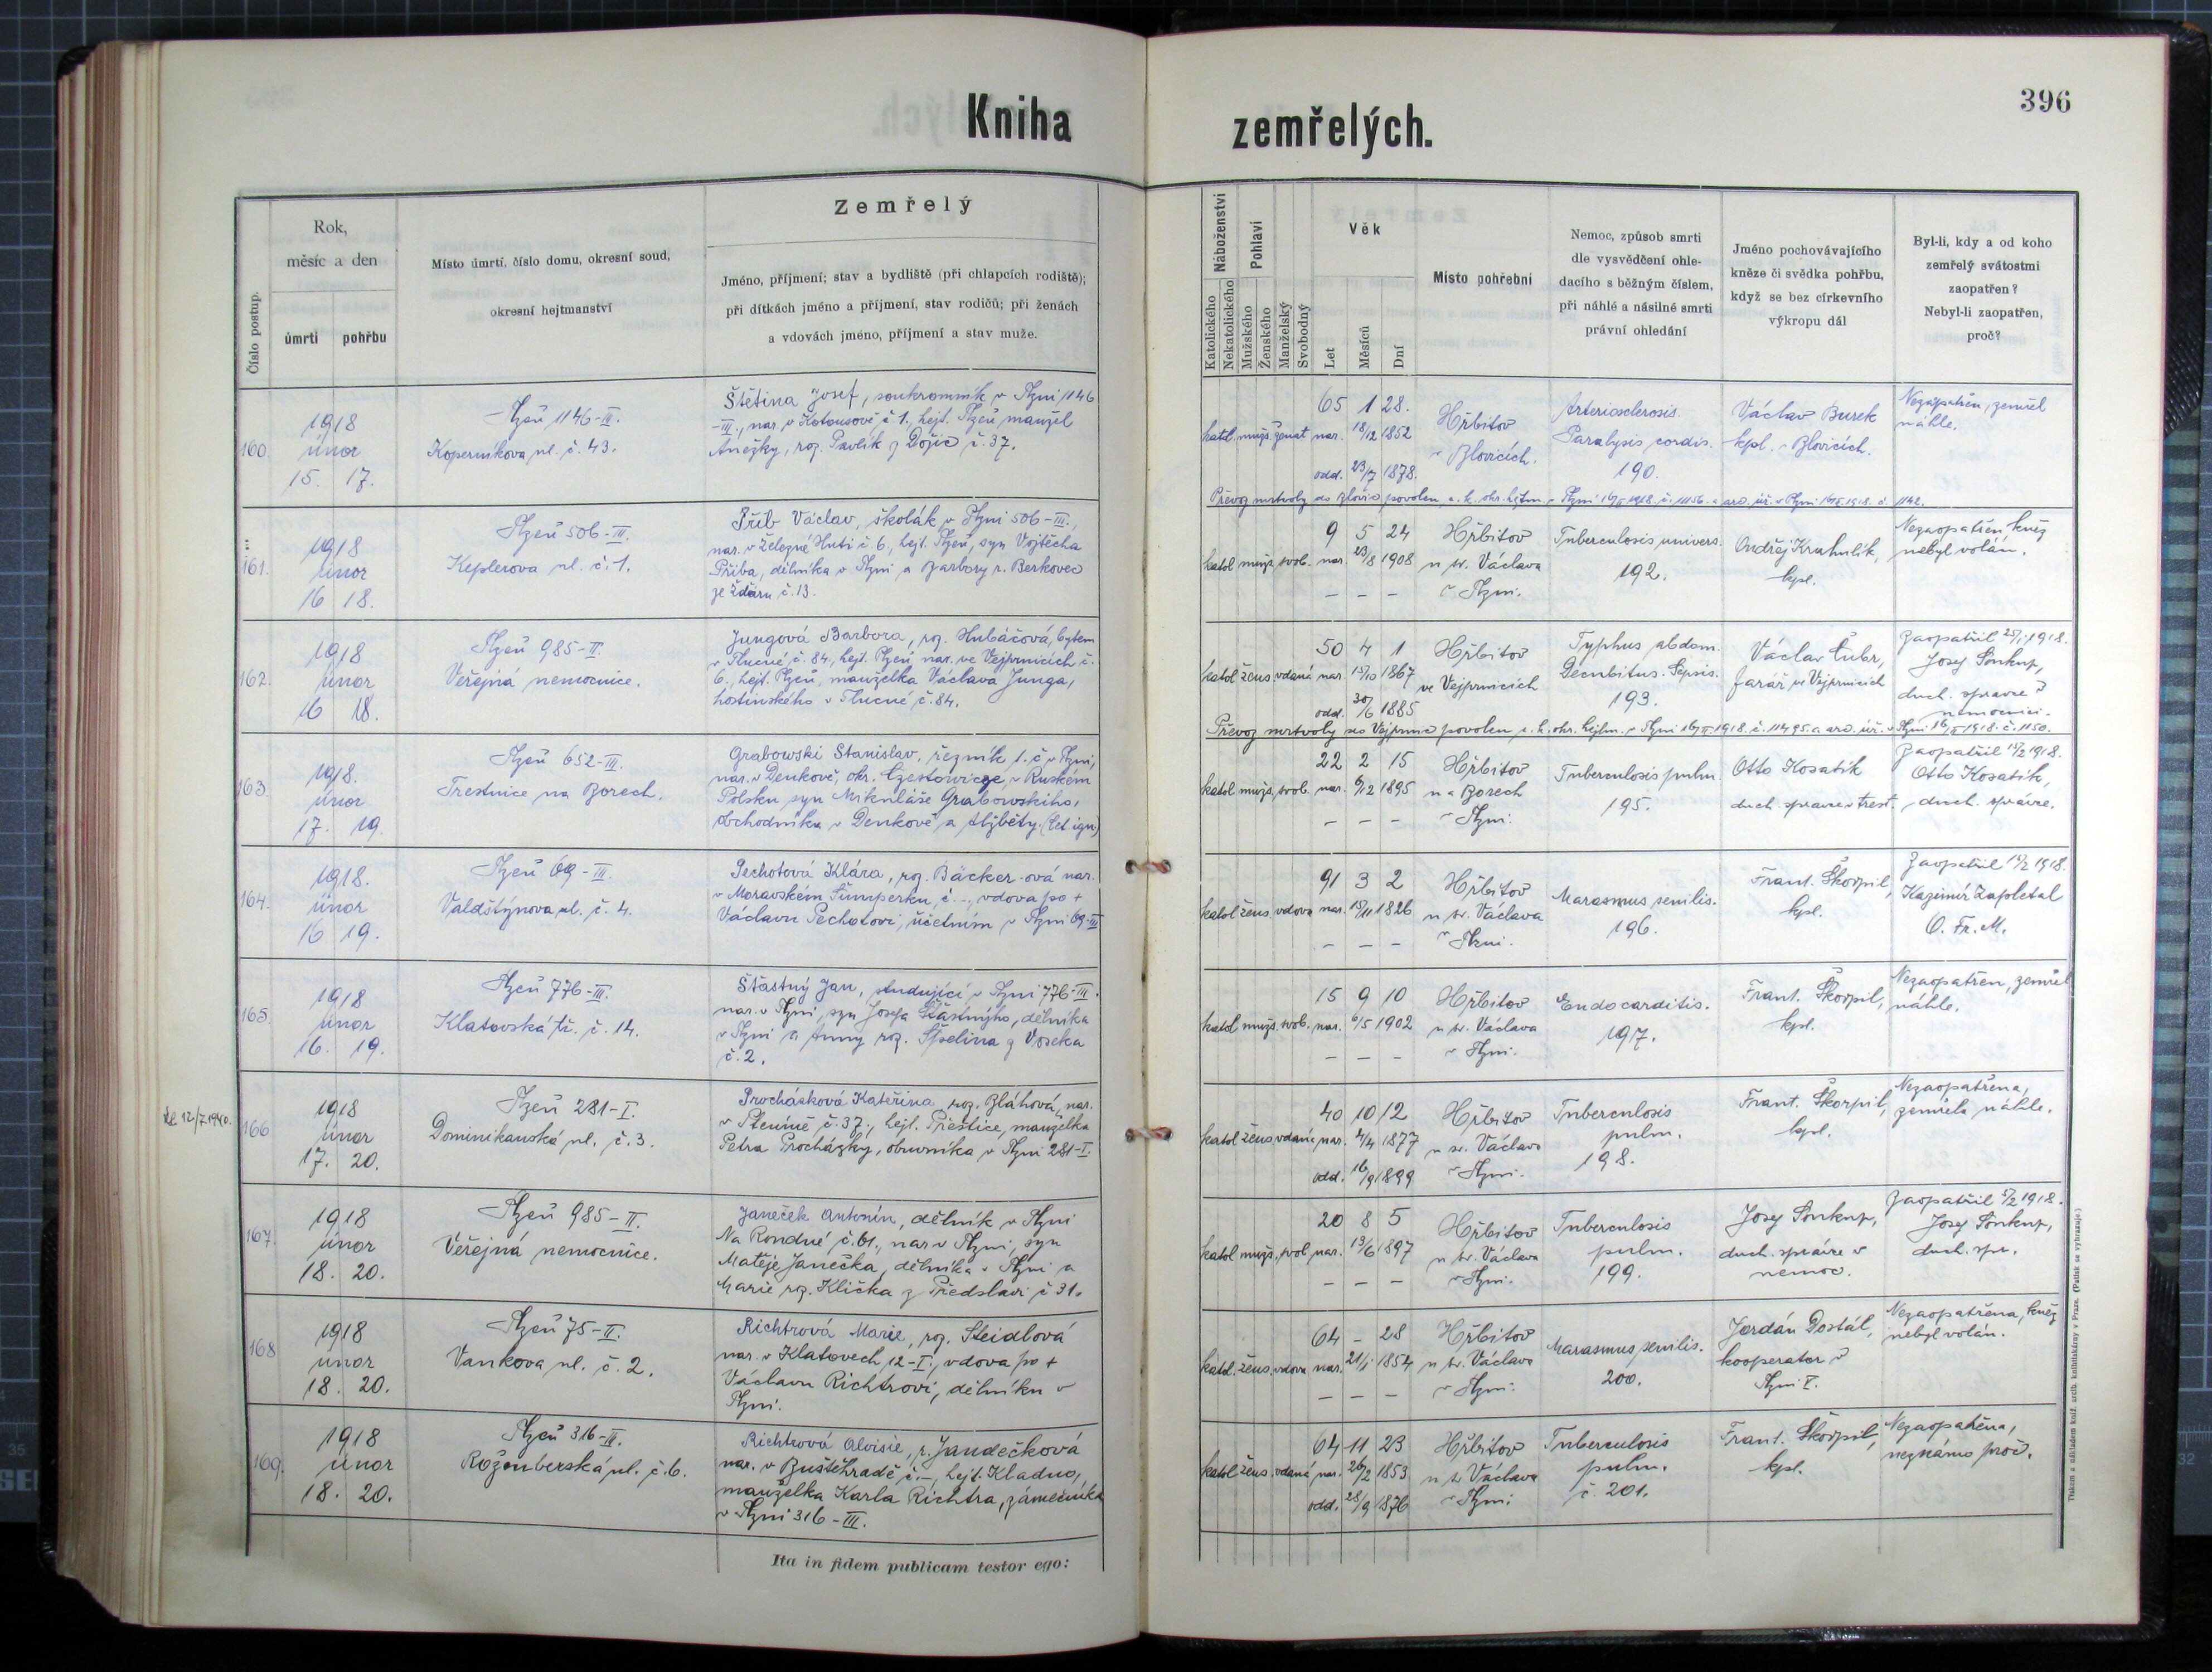 Kniha
zemřelých.
396
Číslo postup.
Rok,
měsíc a den
úmrtí
pohřbu
Místo úmrtí, číslo domu, okresní soud,
okresní hejtmanství
Zemřelý
Jméno, příjmení; stav a bydliště (při chlapcích rodiště);
při dítkách jméno a příjmení, stav rodičů; při ženách
a vdovách jméno, příjmení a stav muže.
Náboženství
Katolického
Nekatolického
Pohlaví
Mužského
Ženského
Manželský
Svobodný
Věk
Let
Měsíců
Dní
Místo pohřební
Nemoc, způsob smrti
dle vysvědčení ohle-
dacího s běžným číslem,
při náhlé a násilné smrti
právní ohledání
Jméno pochovávajícího
kněze či svědka pohřbu,
když se bez církevního
výkropu dál
Byl-li, kdy a od koho
zemřelý svátostmi
zaopatřen?
Nebyl-li zaopatřen,
proč?
160.
1918
únor
15. 17.
Plzeň 1146-III.
Koperníkova ul. č. 43.
Štětina Josef, soukromník v Plzni 1146
-III., nar. v Kotousově č. 1., hejt. Plzeň manžel
Anežky, roz. Pavlík z Dožic č. 37.
65 1 28.
katol. mužs. ženat nar. 18/12 1852
odd. 23/7 1878.
Hřbitov
v Blovicích.
Arteriosclerosis.
Paralysis cordis.
190.
Václav Burek
kpl. v Blovicích.
Nezaopatřen, zemřel
náhle.
Převoz mrtvoly do Blovic povolen c. k. okr. hejtm. v Plzni 16/II 1918. č. 11156. a arc. úř. v Plzni 16/II 1918. č. 1142.
161.
1918
únor
16 18.
Plzeň 506-III.
Keplerova ul. č. 1.
Příb Václav, školák v Plzni 506-III.,
nar. v Železné Huti č. 6., hejt. Plzeň, syn Vojtěcha
Příba, dělníka v Plzni a Barbory r. Berkovec
ze Ždáru č. 13.
9 5 24
katol mužs. svob. nar. 23/8 1908
– – –
Hřbitov
u sv. Václava
v Plzni.
Tuberculosis univers.
192.
Ondřej Kruhulík,
kpl.
Nezaopatřen kněz
nebyl volán.
162.
1918
únor
16 18.
Plzeň 985-II.
Veřejná nemocnice.
Jungová Barbora, roz. Hubáčová, bytem
v Tlucné č. 84, hejt. Plzeň nar. ve Vejprnicích č.
6., hejt. Plzeň, manželka Václava Junga,
hostinského v Tlucné č. 84.
50 4 1
katol žens vdaná nar. 15/10 1867
odd. 30/6 1885
Hřbitov
ve Vejprnicích
Typhus abdom.
Decubitus. Sepsis.
193.
Václav Čubr,
farář ve Vejprnicích
Zaopatřil 25/I 1918.
Josef Soukup,
duch. správce v
nemocnici.
Převoz mrtvoly do Vejprnic povolen c. k. okr. hejtm. v Plzni 16/II 1918. č. 11495. a arc. úř. v Plzni 16/II 1918. č. 1150.
163.
1918.
únor
17. 19.
Plzeň 652-III.
Trestnice na Borech.
Grabowski Stanislav, řezník t. č v Plzni,
nar. v Denkově, okr. Czestowicze, v Ruském
Polsku syn Mikuláše Grabowského,
obchodníka v Denkově a Alžběty. (cet. ign.)
22 2 15
katol mužs. svob. nar. 2/12 1895
– – –
Hřbitov
na Borech
v Plzni.
Tuberculosis pulm.
195.
Otto Kosatík
duch. správce v trest.
Zaopatřil 14/2 1918.
Otto Kosatík,
duch. správce.
164.
1918.
únor
16 19.
Plzeň 69-III.
Valdštýnova ul. č. 4.
Pechotová Klára, roz. Bäcker-ová nar.
v Moravském Šumperku, č. –, vdova po +
Václavu Pechotovi, účetním v Plzni 69-III
91 3 2
katol žens. vdova nar. 15/11 1826
– – –
Hřbitov
u sv. Václava
v Plzni.
Marasmus senilis.
196.
Frant. Škorpil,
kpl.
Zaopatřil 14/2 1918.
Kazimír Zapletal
O. Fr. M.
165.
1918
únor
16. 19.
Plzeň 776-III.
Klatovská tř. č. 14.
Šťastný Jan, studující v Plzni 776-III.
nar. v Plzni, syn Josefa Šťastného, dělníka
v Plzni a Anny roz. Špelina z Voseka
č. 2.
15 9 10
katol mužs. svob. nar. 6/5 1902
– – –
Hřbitov
u sv. Václava
v Plzni.
Endocarditis.
197.
Frant. Škorpil,
kpl.
Nezaopatřen, zemřel
náhle.
12/7.1940.
166
1918
únor
17. 20.
Plzeň 281-I.
Dominikanská ul. č. 3.
Procházková Kateřina roz. Bláhová, nar.
v Ptenině č. 37., hejt. Přeštice, manželka
Petra Procházky, obuvníka v Plzni 281-I.
40 10 12
katol žens vdaná nar. 4/4 1877
odd. 16/9 1899
Hřbitov
u sv. Václava
v Plzni.
Tuberculosis
pulm.
198.
Frant. Škorpil,
kpl.
Nezaopatřena,
zemřela náhle.
167.
1918
únor
18. 20.
Plzeň 985-II.
Veřejná nemocnice.
Janeček Antonín, dělník v Plzni
Na Rondné č. 61., nar v Plzni, syn
Matěje Janečka, dělníka v Plzni a
Marie roz. Klička z Předslavi č 31.
20 8 5
katol mužs. svob. nar. 13/6 1897
– – –
Hřbitov
u sv. Václava
v Plzni.
Tuberculosis
pulm.
199.
Josef Soukup,
duch. správce v
nemoc.
Zaopatřil 5/2 1918.
Josef Soukup,
duch. spr.
168
1918
únor
18. 20.
Plzeň 75-II.
Vankova ul. č. 2.
Richtrová Marie, roz. Steidlová
nar. v Klatovech 12-I., vdova po +
Václavu Richtrovi, dělníku v
Plzni.
64 – 28
katol. žens. vdova nar. 21/1 1854
– – –
Hřbitov
u sv. Václava
v Plzni.
Marasmus senilis.
200.
Jordán Dostál,
kooperator v
Plzni I.
Nezaopatřena, kněz
nebyl volán.
169.
1918
únor
18. 20.
Plzeň 316-III.
Roženberská ul. č. 6.
Richtrová Aloisie, r. Jandečková
nar. v Buštěhradě č. –, hejt. Kladno,
manželka Karla Richtra, zámečníka
v Plzni 316-III.
64 11 23
katol žens. vdaná nar. 26/2 1853
odd. 28/9 1876
Hřbitov
u sv Václava
v Plzni.
Tuberculosis
pulm.
č. 201.
Frant. Škorpil,
kpl.
Nezaopatřena,
neznámo proč.
Ita in fidem publicam testor ego:
Tiskem a nákladem kníž. arcib. knihtiskárny v Praze. (Patisk se vyhrazuje.)